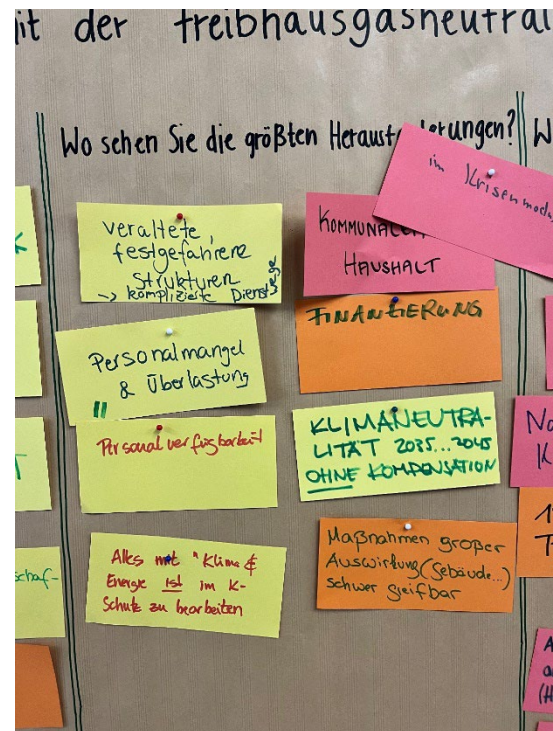 it der treibhausgasneutral
Wo sehen Sie die größten Herausforderungen?
W
veraltete,
festgefahrene
Strukturen
-> komplizierte Dienstwege
Personalmangel
& Überlastung
Personalverfügbarkeit
Alles mit "Klima &
Energie ist im K-
Schutz zu bearbeiten
im Krisenmodu
KOMMUNALER
HAUSHALT
FINANZIERUNG
KLIMANEUTRA-
LITÄT 2035...2045
OHNE KOMPENSATION
Maßnahmen großer
Auswirkung (Gebäude...)
schwer greifbar
K
T
schaf-
No
K
1
T
A
a
(H